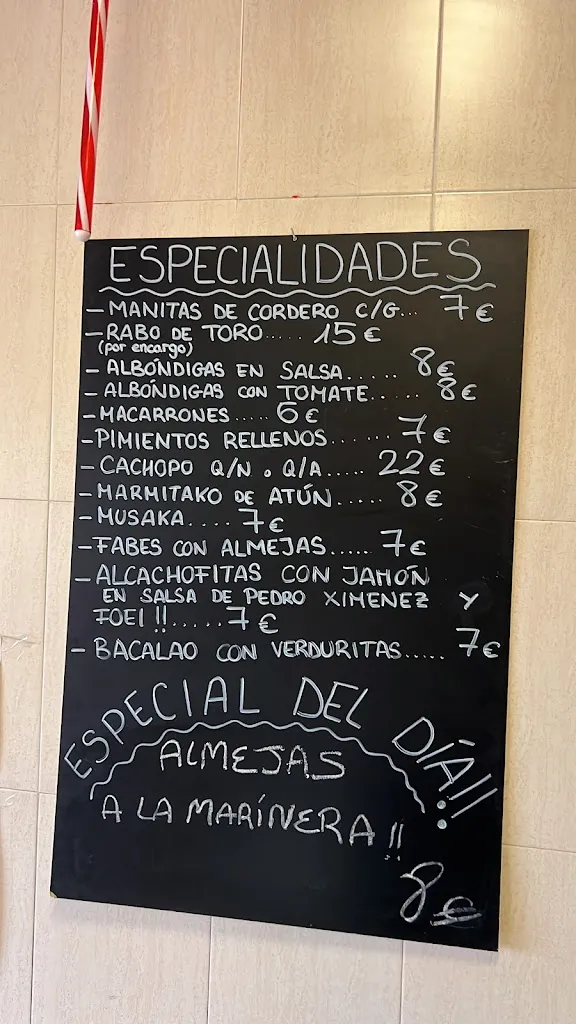 ESPECIALIDADES
- MANITAS DE CORDERO C/G... 7€
- RABO DE TORO..... 15€
(por encargo)
- ALBÓNDIGAS EN SALSA..... 8€
- ALBÓNDIGAS CON TOMATE..... 8€
- MACARRONES.... 6€
- PIMIENTOS RELLENOS....... 7€
- CACHOPO Q/N o Q/A..... 22€
- MARMITAKO DE ATÚN..... 8€
- MUSAKA.... 7€
- FABES CON ALMEJAS..... 7€
- ALCACHOFITAS CON JAMÓN
EN SALSA DE PEDRO XIMENEZ Y
FOEI!!..... 7€
- BACALAO CON VERDURITAS..... 7€
ESPECIAL DEL DÍA!!
ALMEJAS
A LA MARÍNERA!!
8€